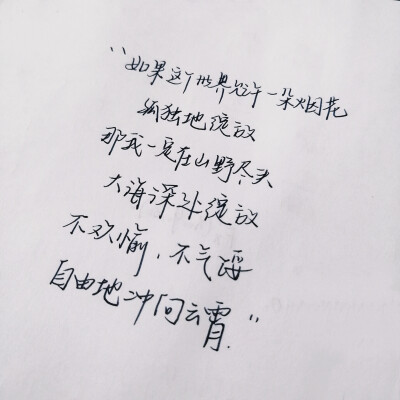 “如果这个世界允许一朵烟花
孤独地绽放
那我一定在山野尽头
大海深处绽放
不欢愉，不气馁
自由地冲向云霄.”